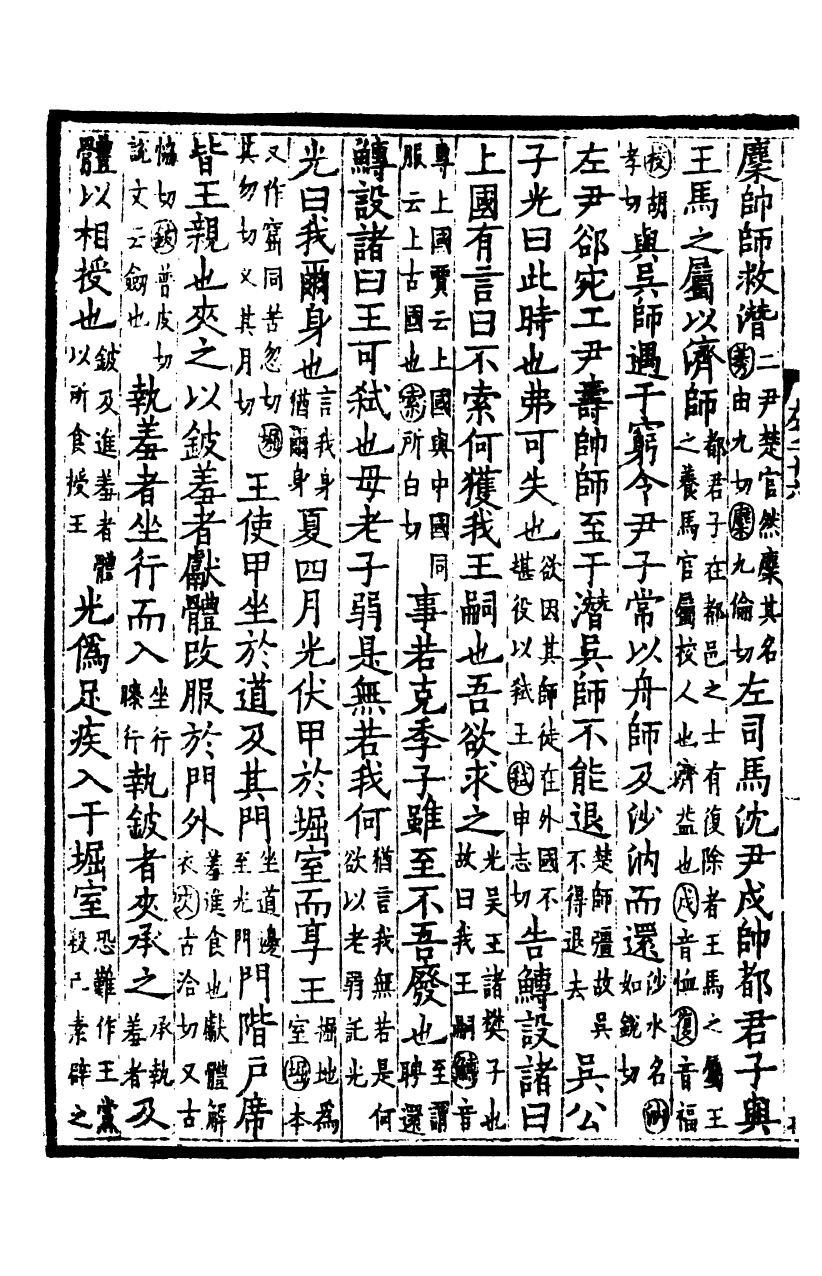 麇帥師救潛二尹楚官然麇其名莠由九切麇九倫切左司馬沈尹戍帥都君子與
王馬之屬以濟師都君子在都邑之士有復除者王馬之屬王之養馬官屬校人也濟益也戍音恤復音福
校胡孝切與吳師遇于窮令尹子常以舟師及沙汭而還沙水名汭如銳切
左尹郤宛工尹壽帥師至于潛吳師不能退楚師彊故吳不得退去吳公
子光曰此時也弗可失也欲因其師徒在外國不堪役以弒王弒申志切告鱄設諸曰
上國有言曰不索何獲我王嗣也吾欲求之光吳王諸樊子也故曰我王嗣鱄音
專上國賈云上國與中國同服云上古國也索所白切事若克季子雖至不吾廢也至謂聘還
鱄設諸曰王可弒也母老子弱是無若我何猶言我無若是何欲以老弱託光
光曰我爾身也言我身猶爾身夏四月光伏甲於堀室而享王掘地為室堀本
又作窟同苦忽切堀其勿切又其月切王使甲坐於道及其門坐道邊至光門門階戶席
皆王親也夾之以鈹羞者獻體改服於門外羞進食也獻體解衣夾古洽切又古
協切鈹普皮切說文云劒也執羞者坐行而入坐行膝行執鈹者夾承之承執羞者及
體以相授也鈹及進羞者體以所食授王光偽足疾入于堀室恐難作王黨殺己素辟之